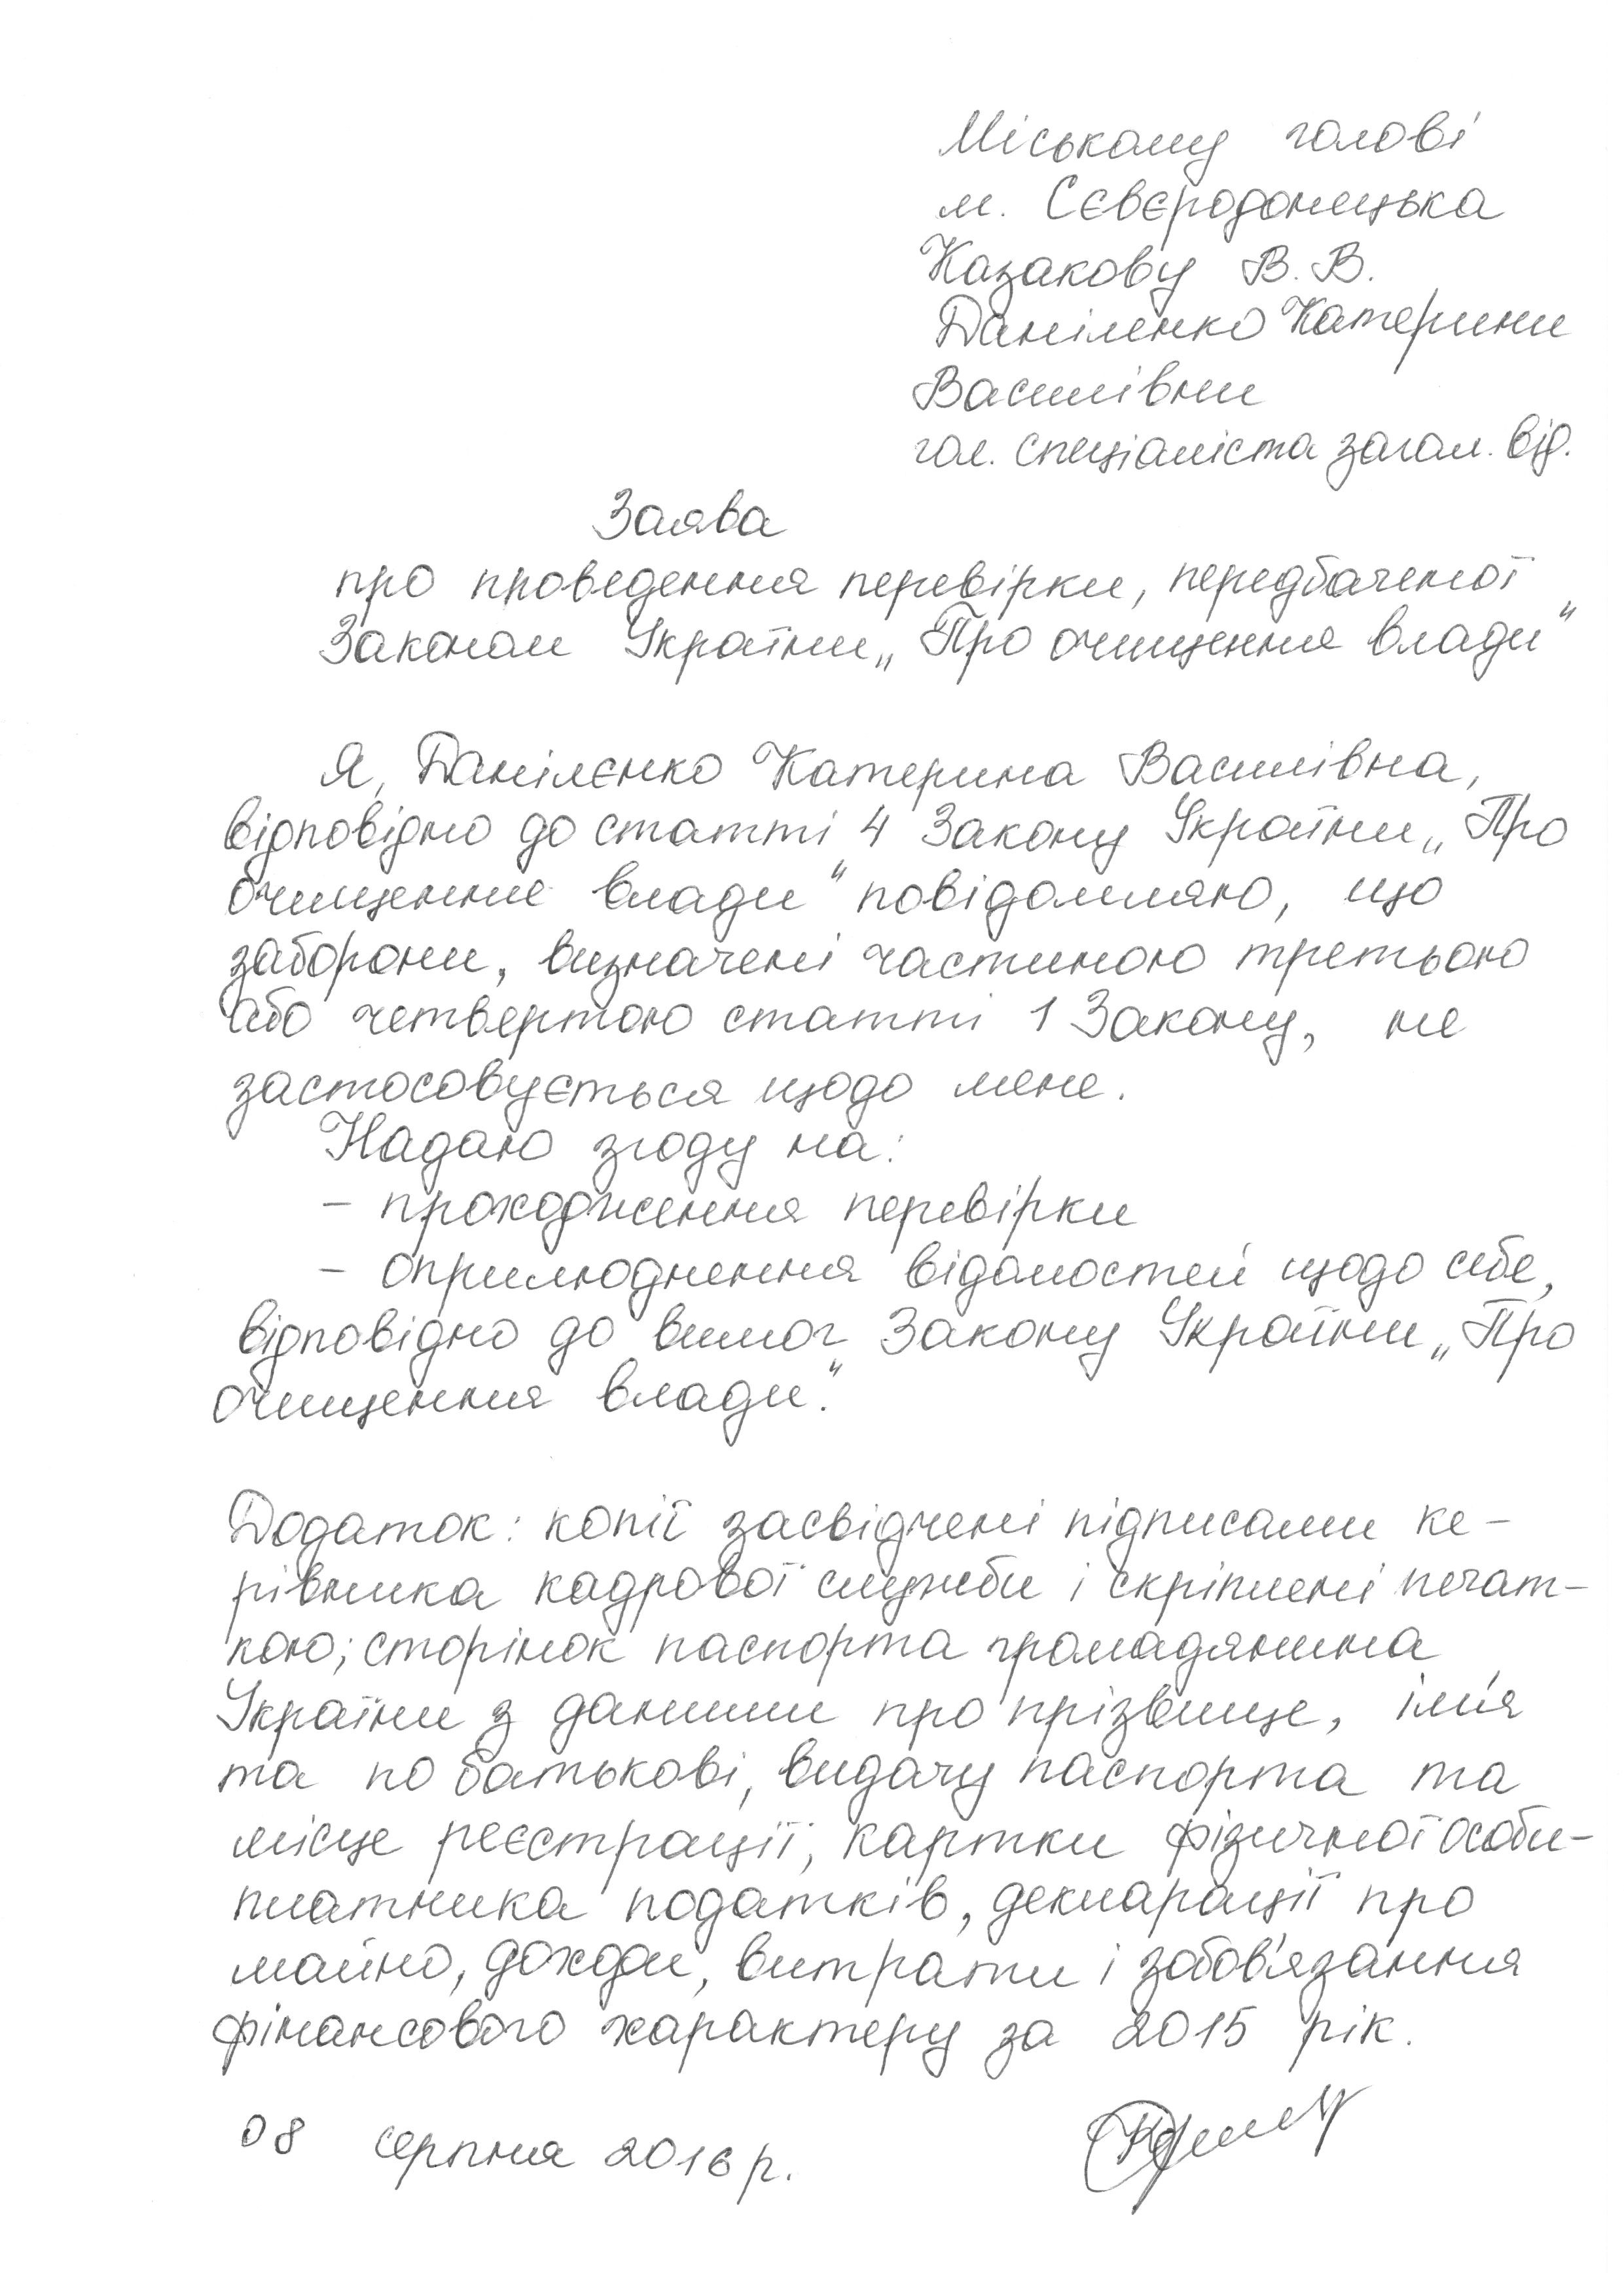 Міському голові
м. Сєвєродонецька
Казакову В. В.
Даніленко Катерини
Василівни
гол. спеціаліста загал. від.
Заява
про проведення перевірки, передбаченої
Законом України „Про очищення влади"
Я, Данілєнко Катерина Василівна,
відповідно до статті 4 Закону України „Про
очищення влади" повідомляю, що
заборони, визначені частиною третьою
або четвертою статті 1 Закону, не
застосовується щодо мене.
Надаю згоду на:
- проходження перевірки
- оприлюднення відомостей щодо себе,
відповідно до вимог Закону України „Про
очищення влади".
Додаток: копії засвідчені підписами ке-
рівника кадрової служби і скріплені печат-
кою; сторінок паспорта громадянина
України з даними про прізвище, ім'я
та по батькові, видачу паспорта та
місце реєстрації, картки фізичної особи-
платника податків, декларації про
майно, доходи, витрати і зобов'язання
фінансового характеру за 2015 рік.
08 серпня 2016 р.